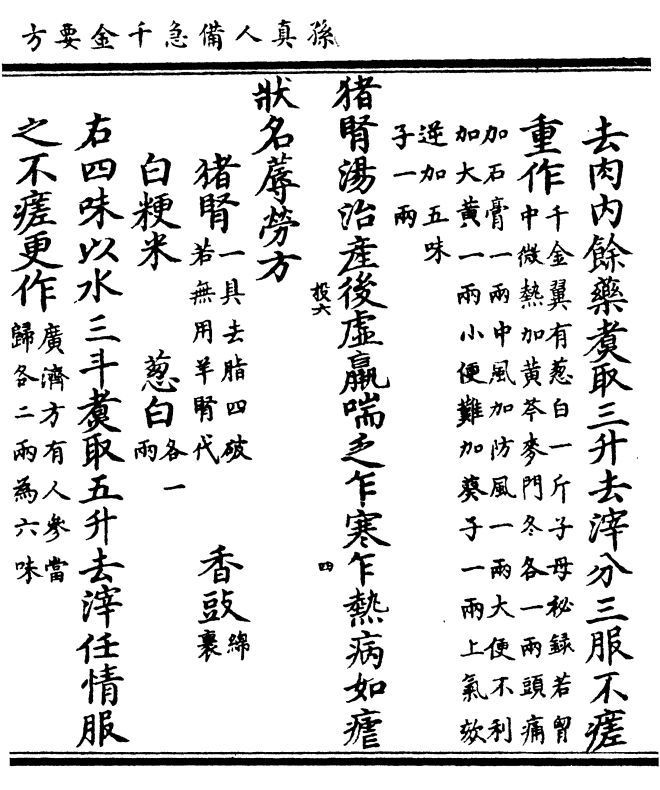 孫真人備急千金要方
去肉内餘藥煑取三升去滓分三服不瘥
重作
千金翼有葱白一斤子母秘録若胷
中微熱加黄芩麥門冬各一兩頭痛
加石膏一兩中風加防風一兩大便不利
加大黄一兩小便難加葵子一兩上氣欬
逆加五味
子一兩
猪腎湯治産後虚羸喘乏乍寒乍熱病如瘧
投六
四
狀名蓐勞方
猪腎
一具去脂四破
若無用羊腎代
香豉
綿
裹
白粳米
葱白
各一
兩
右四味以水三斗煑取五升去滓任情服
之不瘥更作
廣濟方有人參當
歸各二兩爲六味